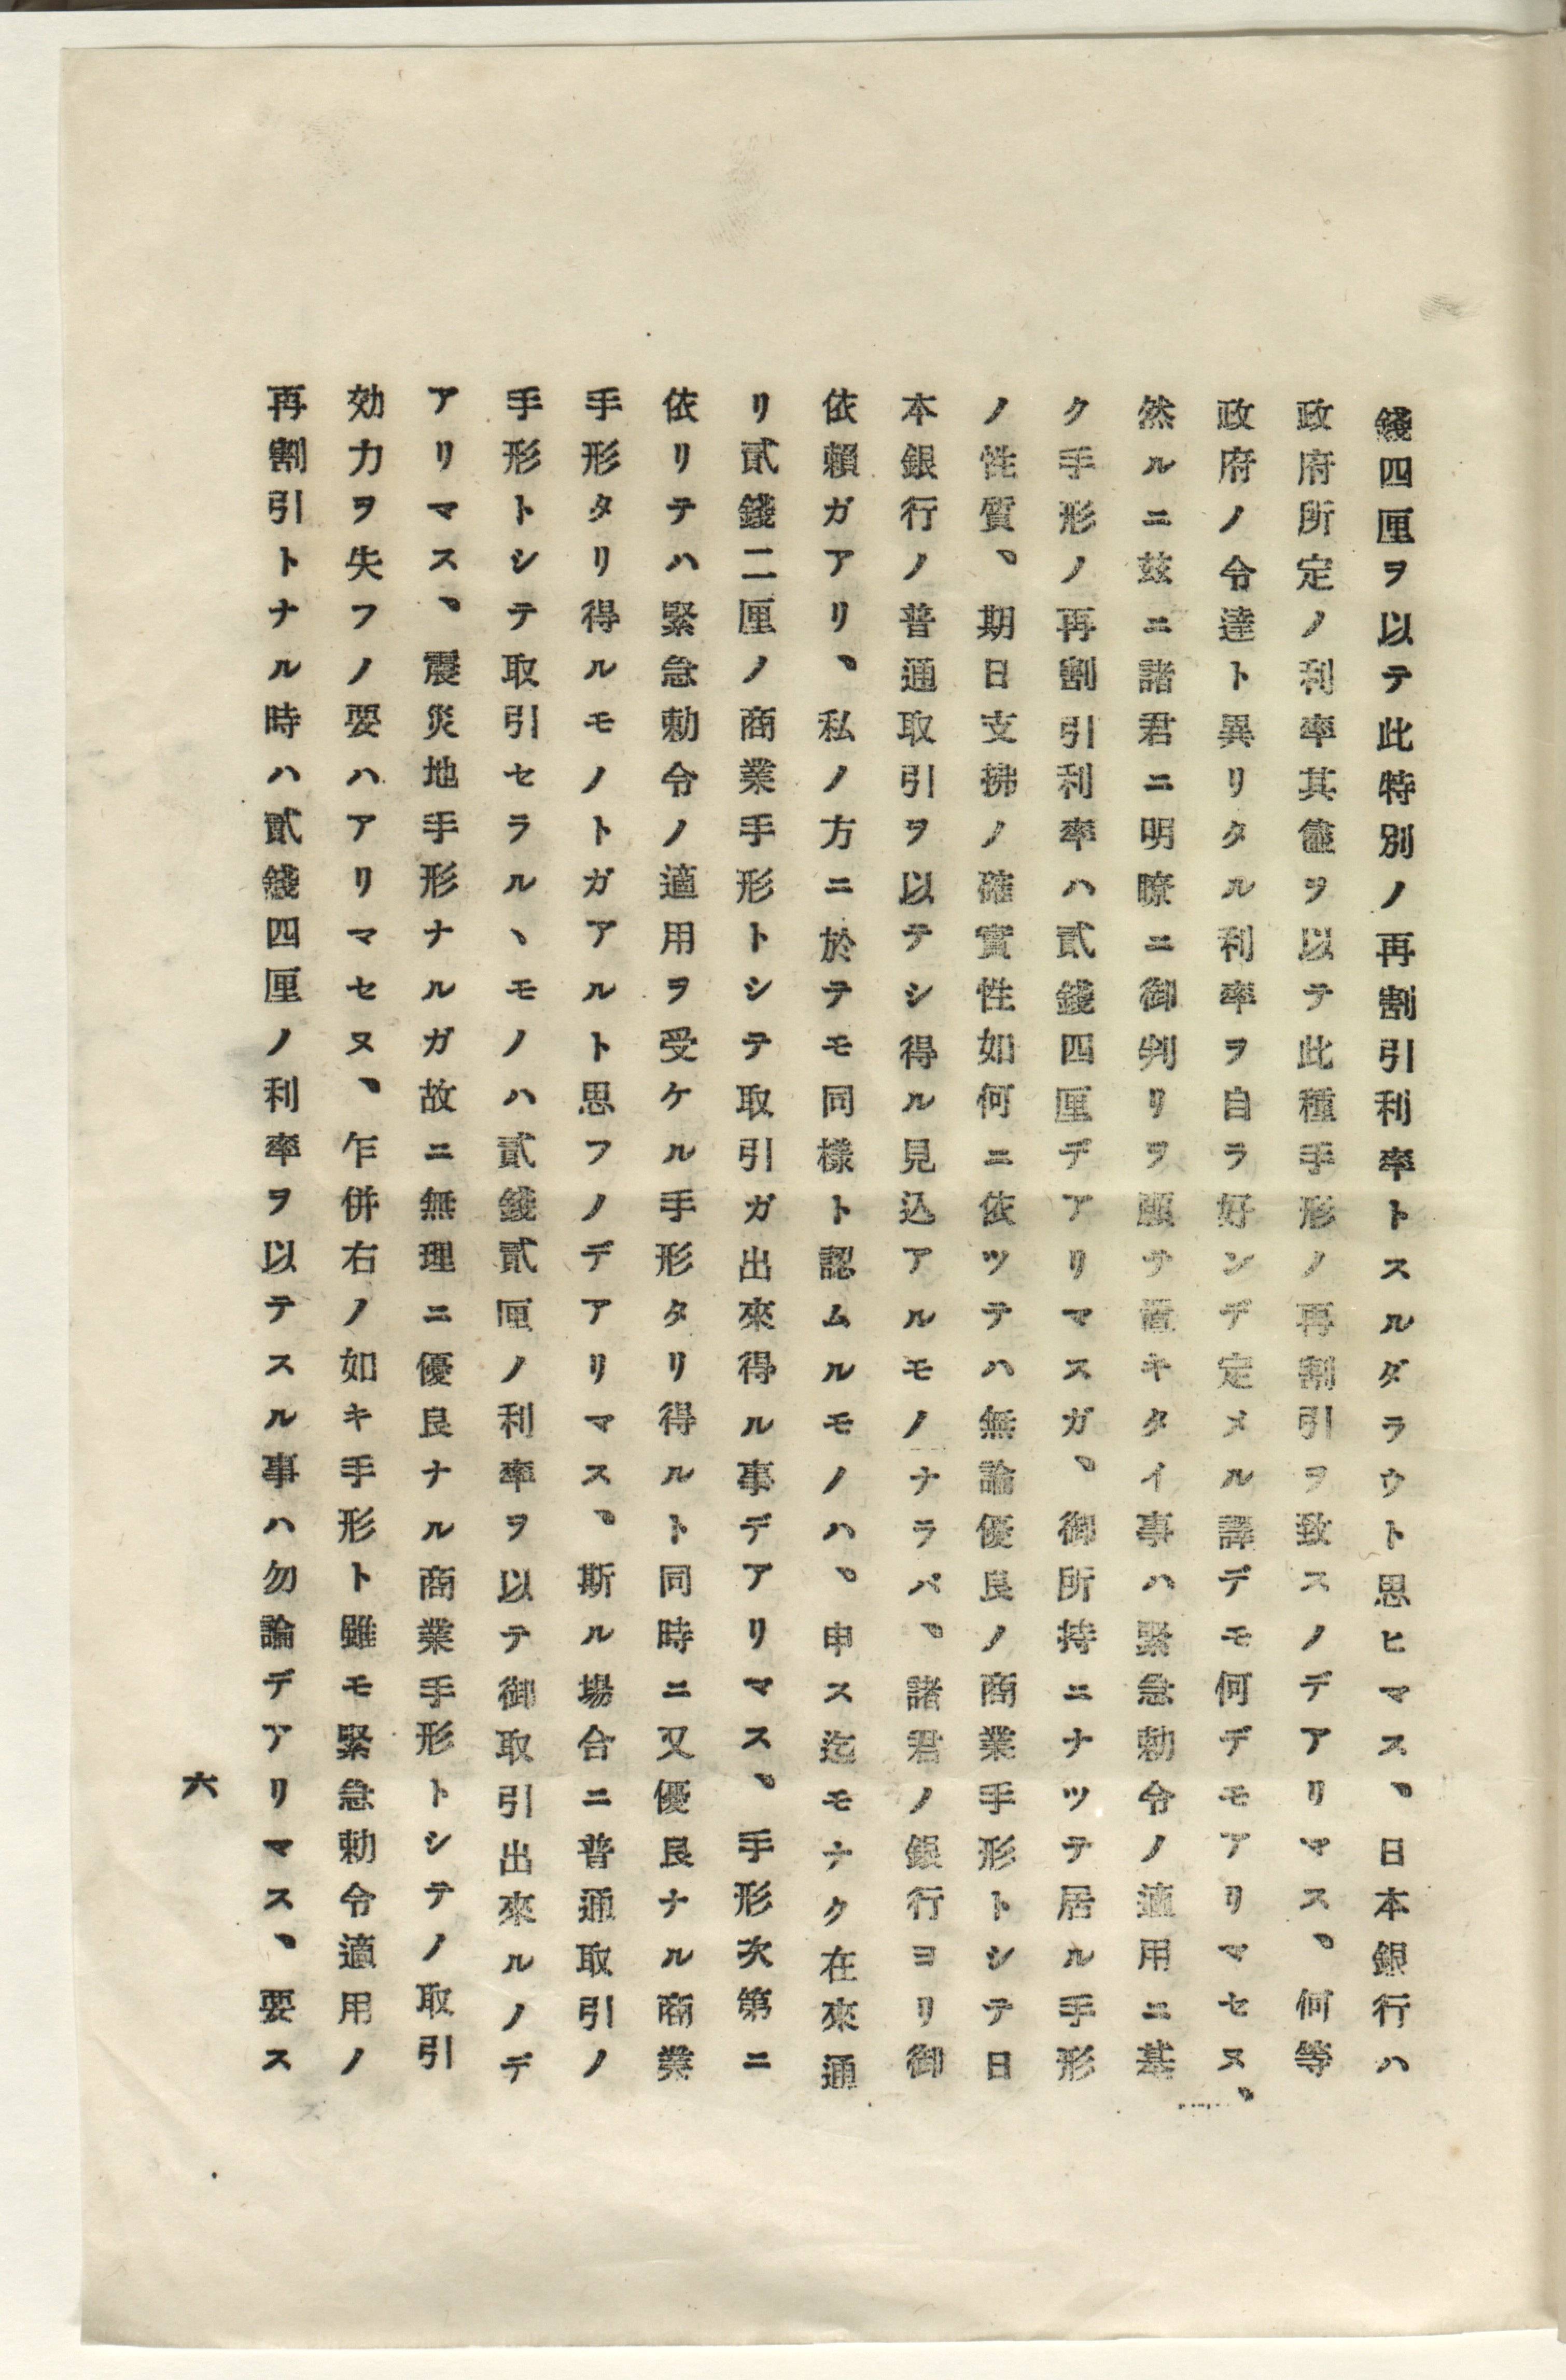 錢四厘ヲ以テ此特別ノ再割引利率トスルダラウト思ヒマス、日本銀行ハ
政府所定ノ利率其儘ヲ以テ此種手形ノ再割引ヲ致スノデアリマス、何等
政府ノ令達ト異リタル利率ヲ自ラ好ンデ定メル譯デモ何デモアリマセヌ、
然ルニ茲ニ諸君ニ明瞭ニ御判リヲ願テ置キタイ事ハ緊急勅令ノ適用ニ基
ク手形ノ再割引利率ハ貳錢四厘デアリマスガ、御所持ニナツテ居ル手形
ノ性質、期日支拂ノ確實性如何ニ依ツテハ無論優良ノ商業手形トシテ日
本銀行ノ普通取引ヲ以テシ得ル見込アルモノナラバ、諸君ノ銀行ヨリ御
依賴ガアリ、私ノ方ニ於テモ同樣ト認ムルモノハ、申ス迄モナク在來通
リ貳錢二厘ノ商業手形トシテ取引ガ出來得ル事デアリマス、手形次第ニ
依リテハ緊急勅令ノ適用ヲ受ケル手形タリ得ルト同時ニ又優良ナル商業
手形タリ得ルモノトガアルト思フノデアリマス、斯ル場合ニ普通取引ノ
手形トシテ取引セラルヽモノハ貳錢貳厘ノ利率ヲ以テ御取引出來ルノデ
アリマス、震災地手形ナルガ故ニ無理ニ優良ナル商業手形トシテノ取引
効力ヲ失フノ要ハアリマセヌ、乍併右ノ如キ手形ト雖モ緊急勅令適用ノ
再割引トナル時ハ貳錢四厘ノ利率ヲ以テスル事ハ勿論デアリマス、要ス
六